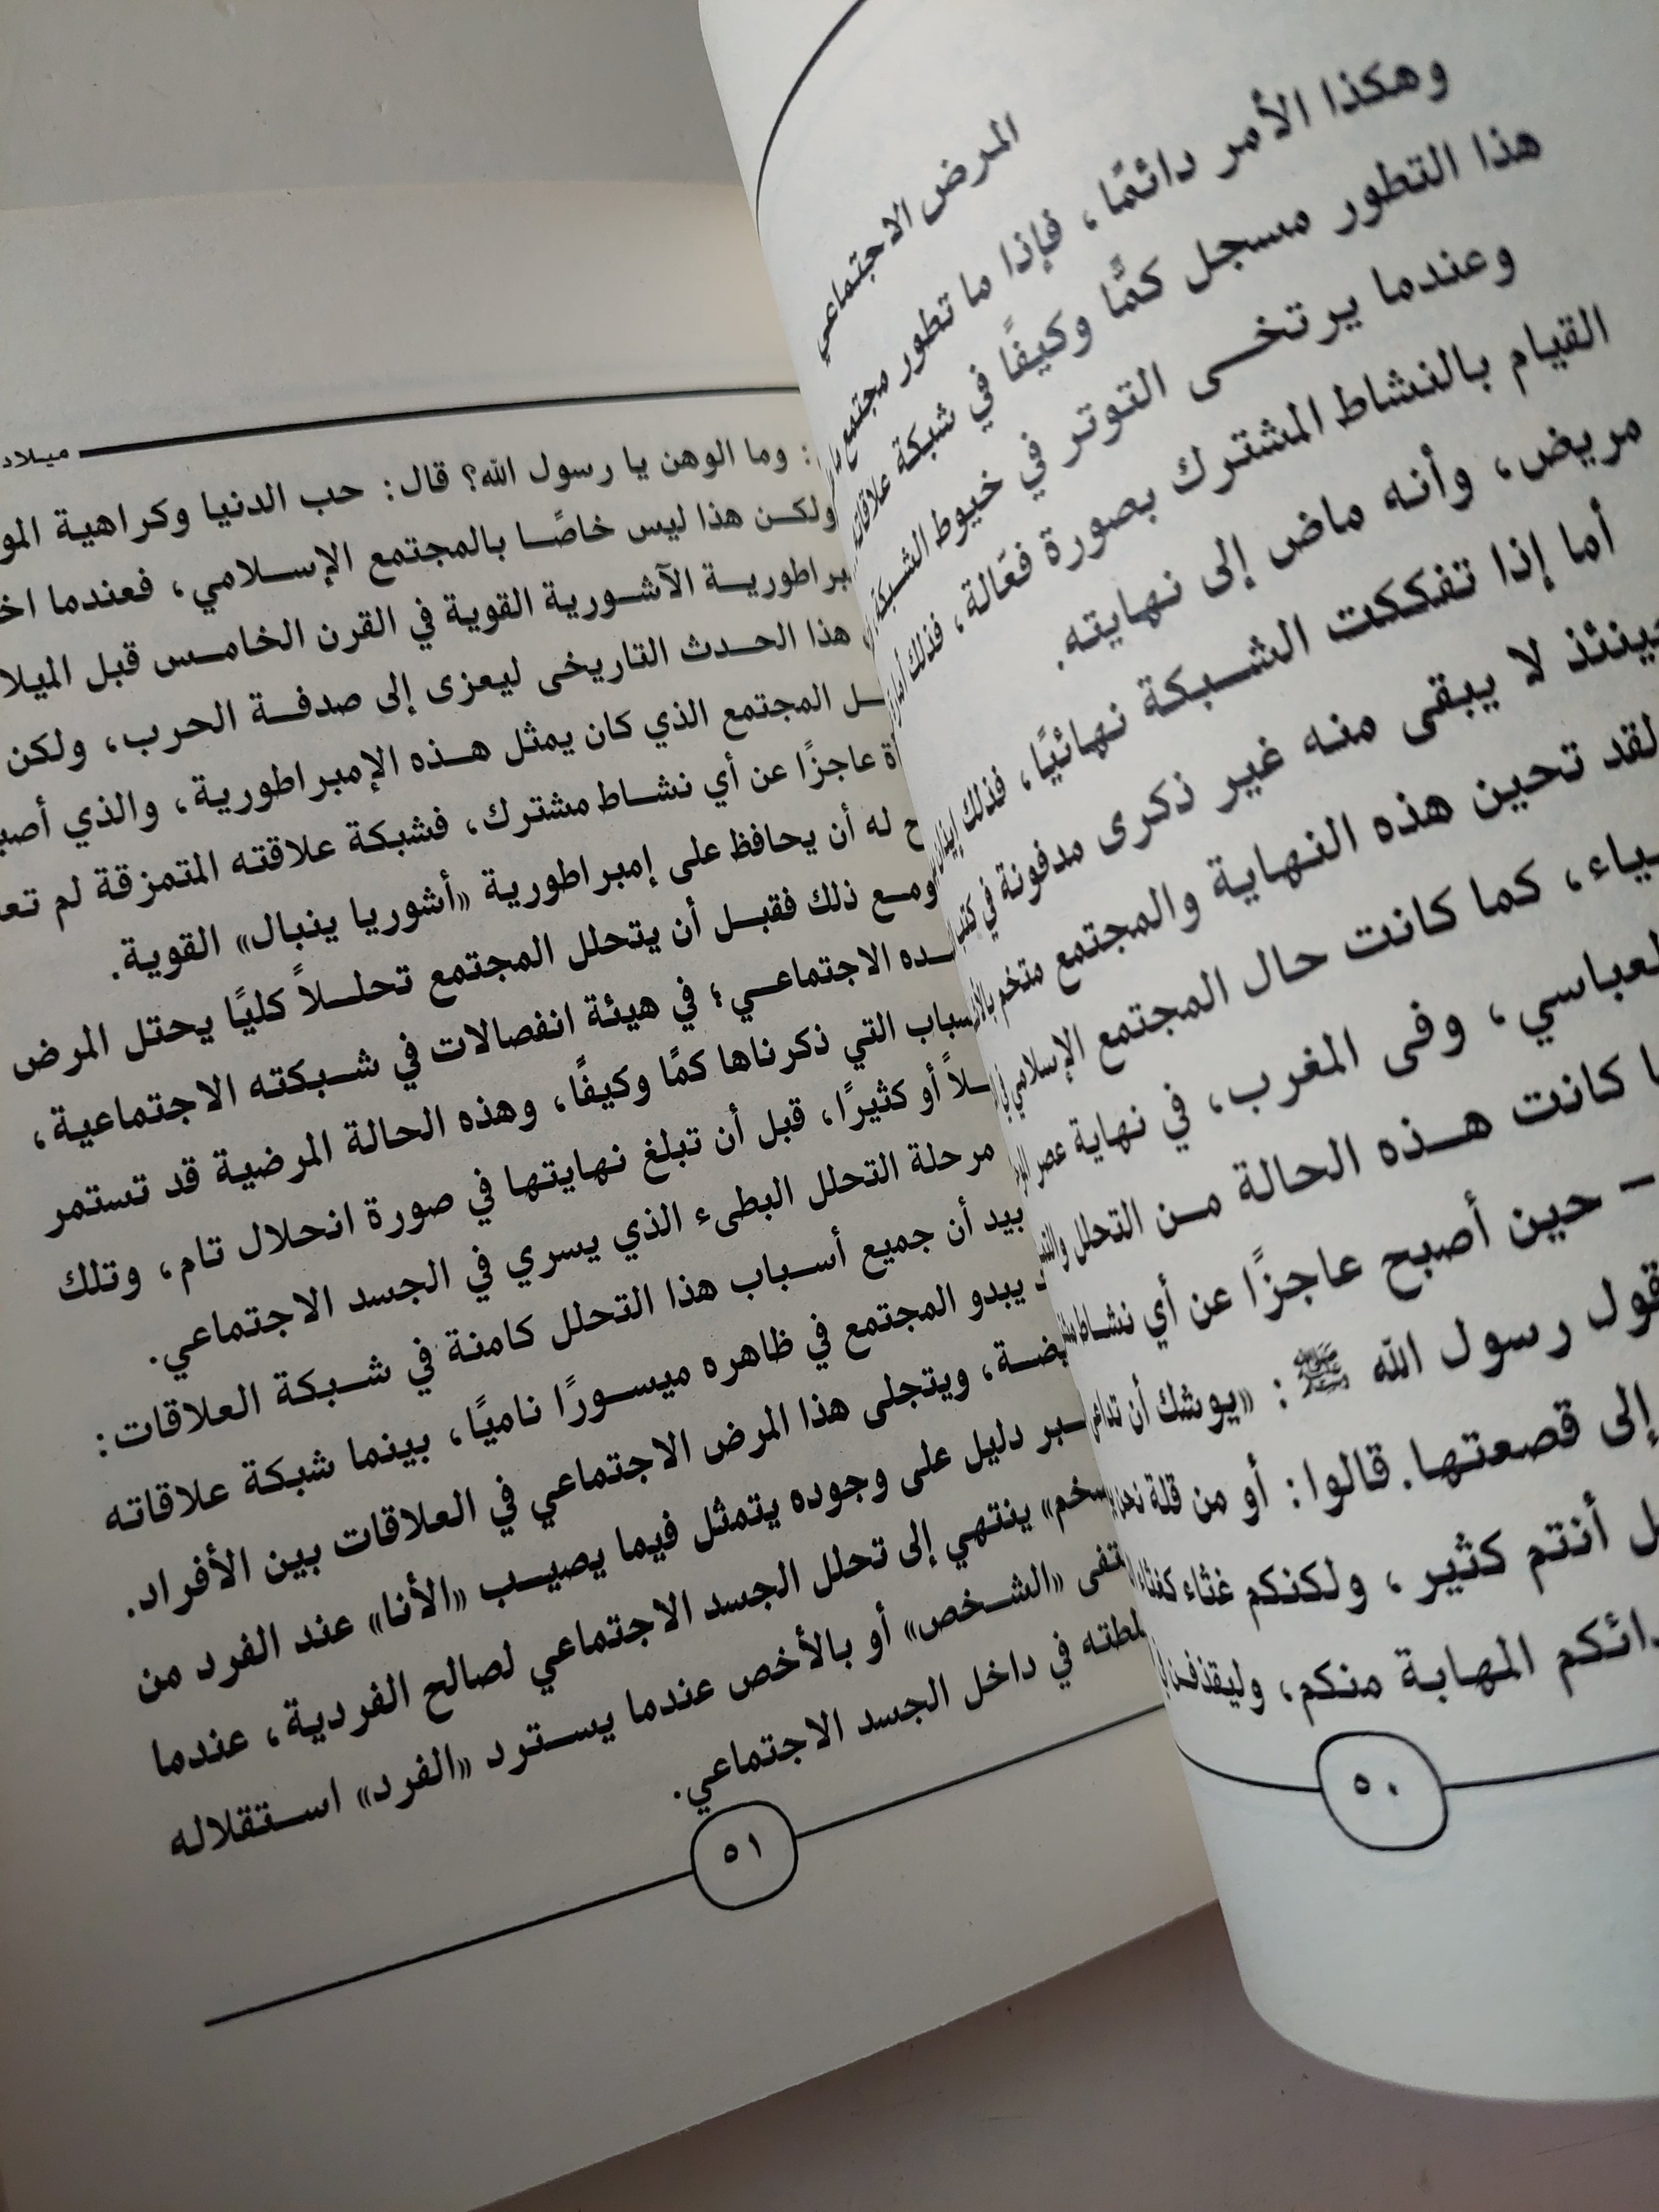 المرض الاجتماعي
وهكذا الأمر دائمًا، فإذا ما تطور مجتمع
هذا التطور مسجل كمًّا وكيفًا في شبكة علاقاته
وعندما يرتخــى التوتر في خيوط الشبكة
القيام بالنشاط المشترك بصورة فعّالة، فذلك
مريض، وأنه ماض إلى نهايته.
أما إذا تفككت الشبكة نهائيًا، فذلك
لا يبقى منه غير ذكرى مدفونة في كتب
تحين هذه النهاية والمجتمع متخم
كما كانت حال المجتمع الإسلامي
وفى المغرب، في نهاية عصر
كانت هــذه الحالة مــن التحلل
– حين أصبح عاجزًا عن أي نشاط
رسول الله ﷺ: «يوشك أن تداعى
إلى قصعتها. قالوا: أو من قلة نحن
أنتم كثير، ولكنكم غثاء
المهابة منكم، وليقذفن
٥٠
ميلاد
: وما الوهن يا رسول الله؟ قال: حب الدنيا وكراهية
ولكــن هذا ليس خاصًــا بالمجتمع الإســلامي، فعندما
الآشــورية القوية في القرن الخامــس قبل
هذا الحــدث التاريخى ليعزى إلى صدفــة الحرب، ولكن
المجتمع الذي كان يمثل هــذه الإمبراطورية، والذي
عاجزًا عن أي نشــاط مشترك، فشبكة علاقته المتمزقة لم
له أن يحافظ على إمبراطورية «أشوريا ينبال» القوية.
ومــع ذلك فقبــل أن يتحلل المجتمع تحلــلاً كليًا يحتل المرض
الاجتماعــي؛ في هيئة انفصالات في شــبكته الاجتماعية،
التي ذكرناها كمًا وكيفًا، وهذه الحالة المرضية قد تستمر
أو كثيرًا، قبل أن تبلغ نهايتها في صورة انحلال تام، وتلك
مرحلة التحلل البطىء الذي يسري في الجسد الاجتماعي.
بيد أن جميع أســباب هذا التحلل كامنة في شــبكة العلاقات:
يبدو المجتمع في ظاهره ميســورًا ناميًا، بينما شبكة علاقاته
ويتجلى هذا المرض الاجتماعي في العلاقات بين الأفراد.
دليل على وجوده يتمثل فيما يصيــب «الأنا» عند الفرد من
ينتهي إلى تحلل الجسد الاجتماعي لصالح الفردية، عندما
«الشــخص» أو بالأخص عندما يســترد «الفرد» اســتقلاله
في داخل الجسد الاجتماعي.
٥١